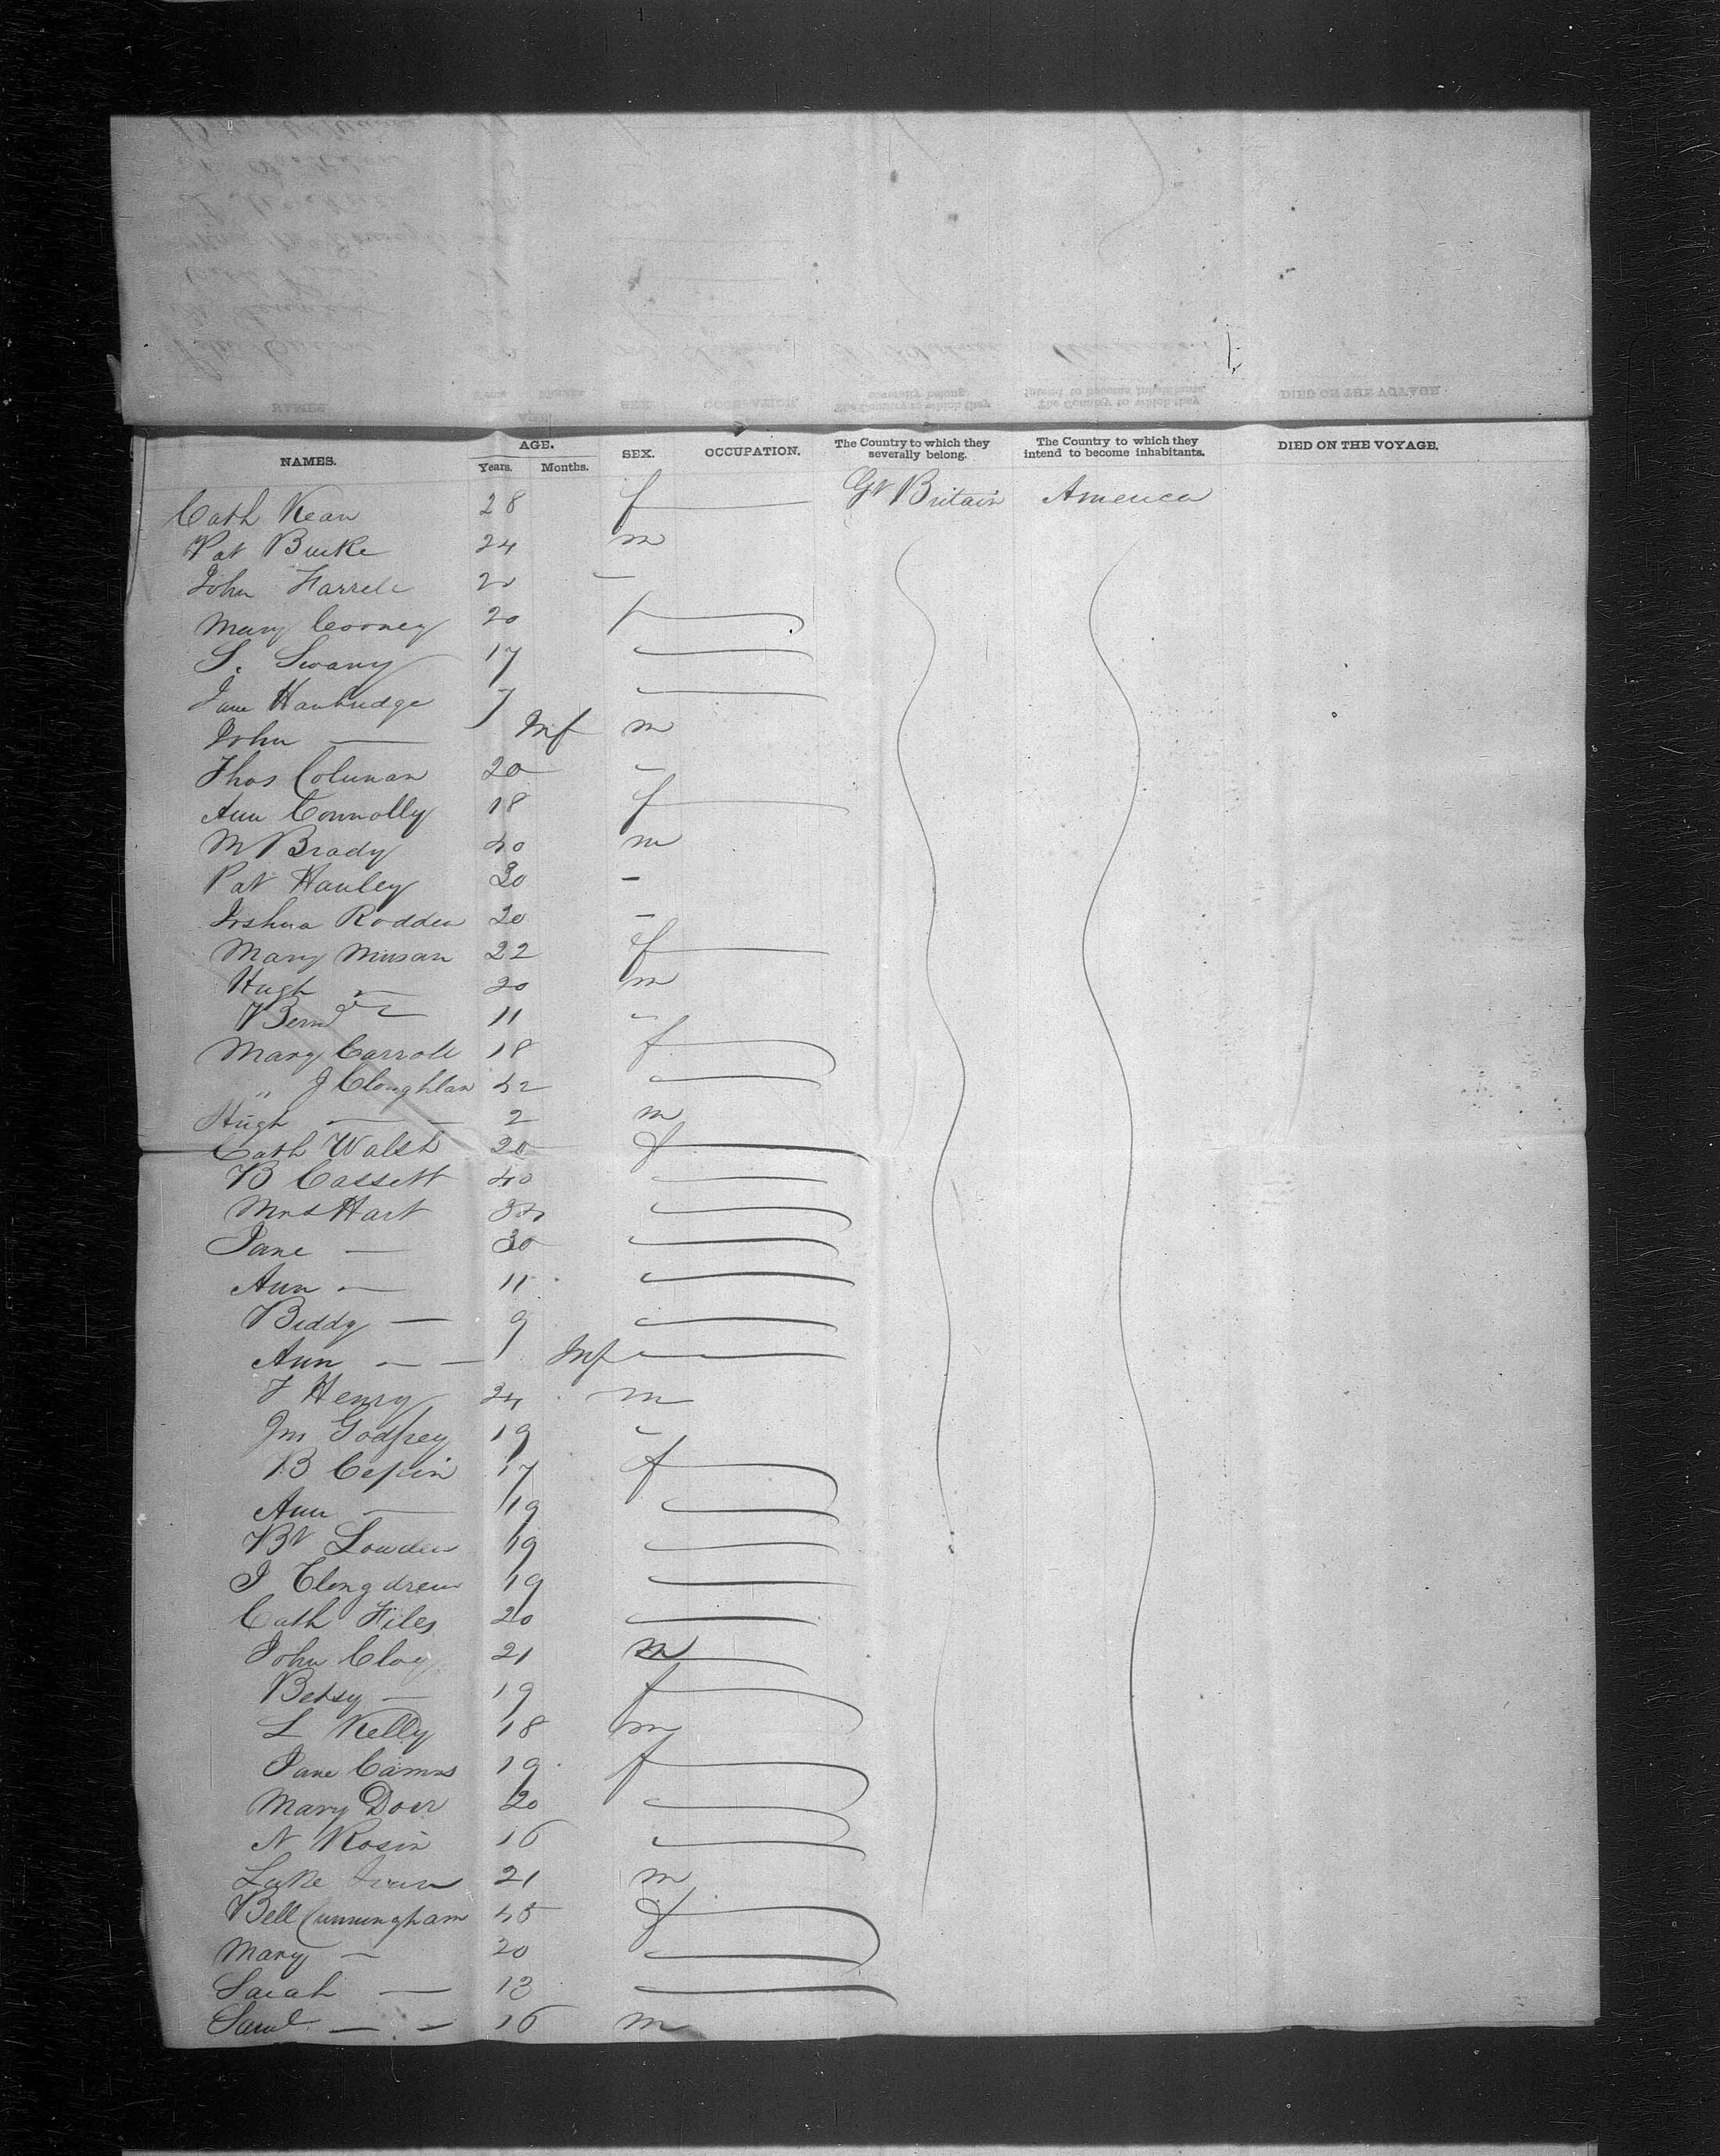 NAMES. AGE. Years. Months. SEX. OCCUPATION. The Country to which they severally belong. The Country to which they intend to become inhabitants. DIED ON THE VOYAGE.
Cath Kean 28 f Gt Britain America
Pat Burke 24 m
John Farrell 20 —
Mary Cooney 20 f
S. Swany 17
Jane Hanbridge 7
John — Inf m
Thos Colunan 20 –
Ann Connolly 18 f
M Brady 40 m
Pat Hanley 30 –
Joshua Rodden 20 –
Mary Minsan 22 f
Hugh — 20 m
Bernd — 11
Mary Carroll 18 f
" J Cloughlan 42
Hugh — 2 m
Cath Walsh 20 f
B Cassett 40
Mrs Hart 34
Jane — 30
Ann — 11
Biddy — 9
Ann — — Inf
F Henry 24 m
Jm Godfrey 19
B Cepin 17 f
Ann — 19
Bt Lowden 19
J Clengdrew 19
Cath Files 20
John Cloy 21 m
Betsy — 19 f
L Kelly 18 m
Jane Cairns 19 f
Mary Doer 20
N Rosin 16
Luke 21 m
Bell Cunningham 45 f
Mary — 20
Sarah — 13
Saml — — 16 m